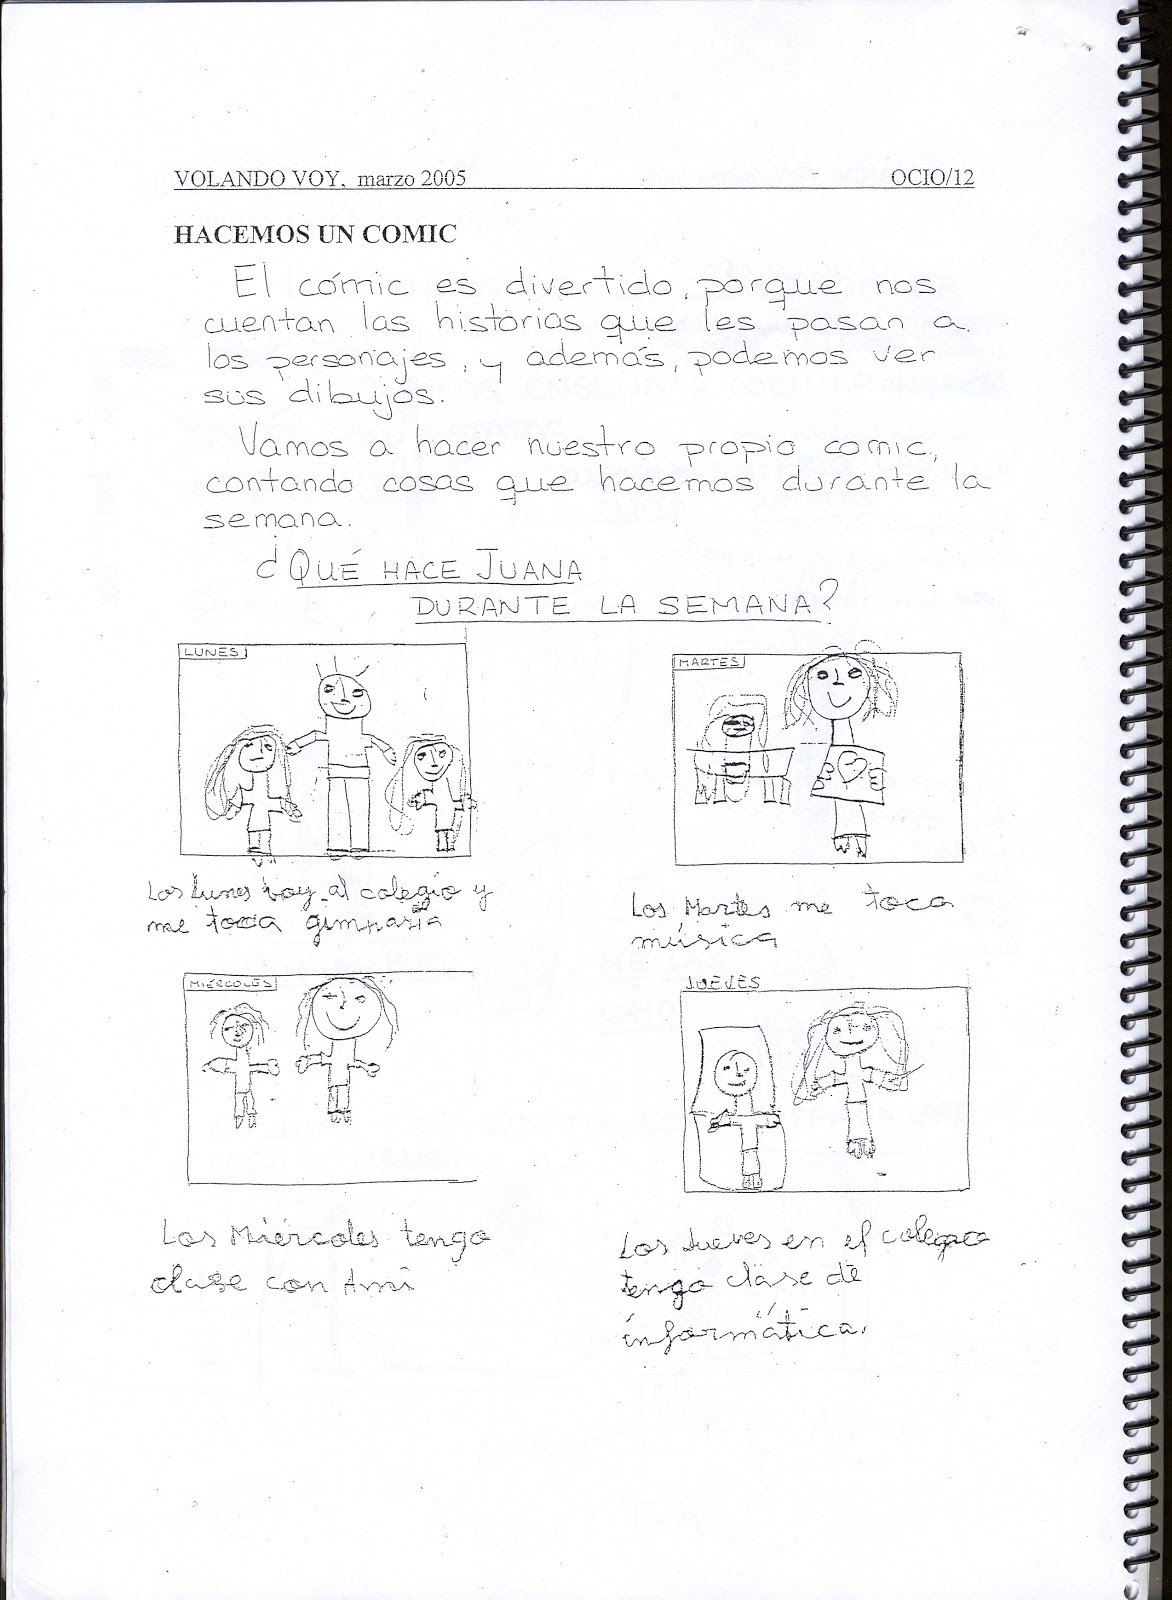 VOLANDO VOY, marzo 2005 OCIO/12
HACEMOS UN COMIC
El cómic es divertido, porque nos
cuentan las historias que les pasan a
los personajes, y además, podemos ver
sus dibujos.
Vamos a hacer nuestro propio comic,
contando cosas que hacemos durante la
semana.
¿QUÉ HACE JUANA
DURANTE LA SEMANA?
LUNES
Los Lunes voy al colegio y
me toca gimnasia
MARTES
Los Martes me toca
música
MIÉRCOLES
Los Miércoles tengo
clase con Ami
JUEVES
Los Jueves en el colegio
tengo clase de
informática.